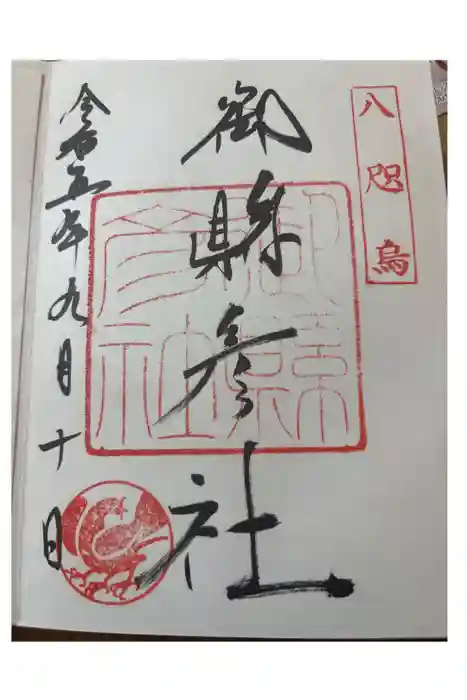 八咫烏
御縣彦社
御縣
彦社
令和五年九月十日